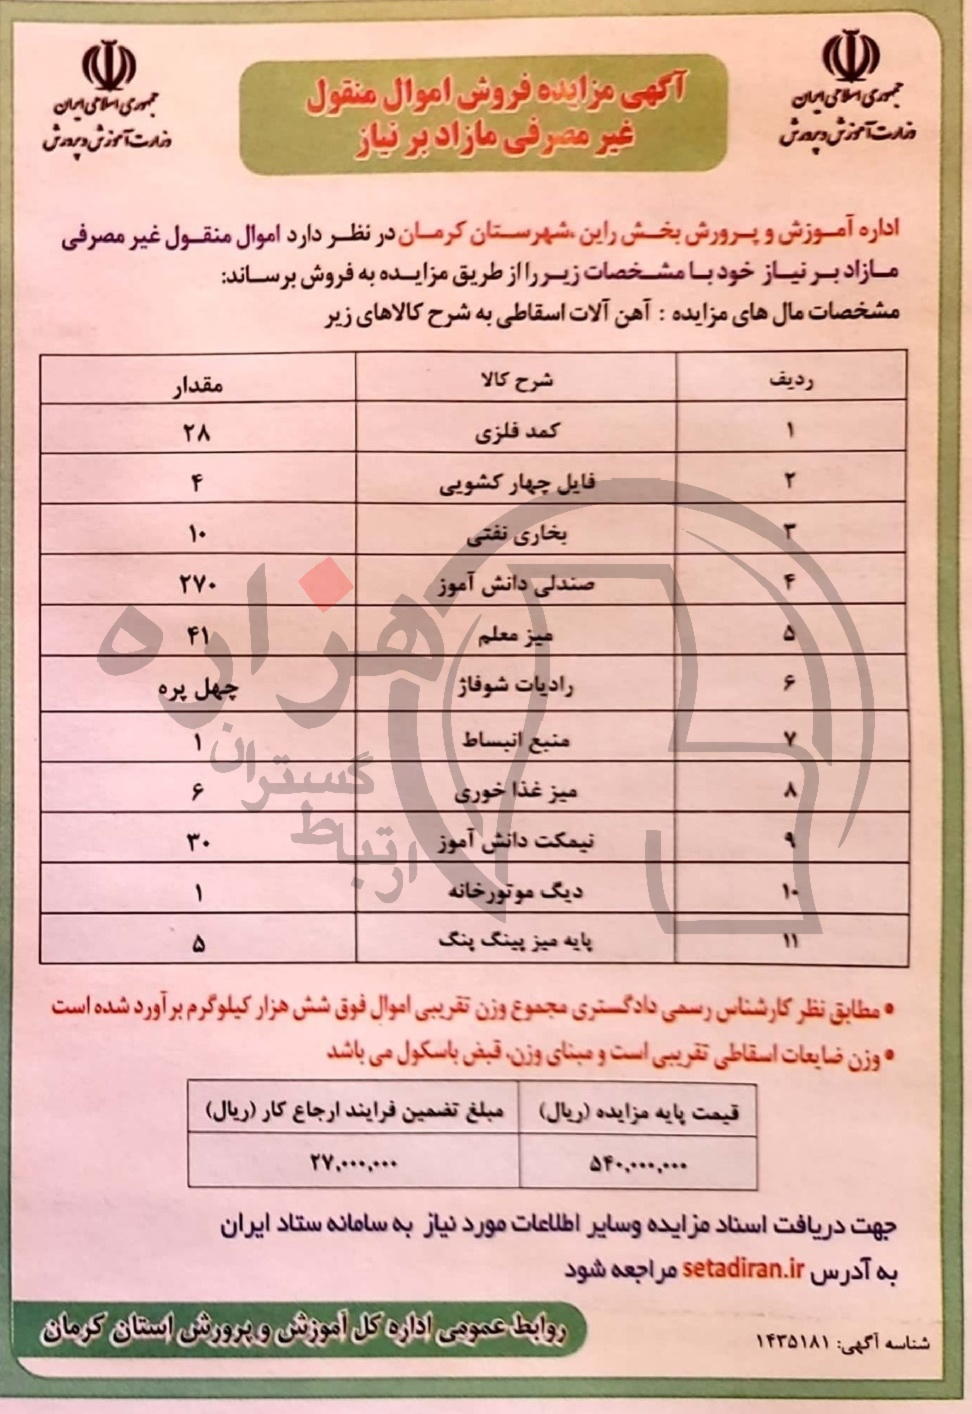 جمهوری اسلامی ایران
وزارت آموزش و پرورش
آگهی مزایده فروش اموال منقول
غیر مصرفی مازاد بر نیاز
جمهوری اسلامی ایران
وزارت آموزش و پرورش
اداره آموزش و پرورش بخش راین ،شهرستان کرمان در نظر دارد اموال منقول غیر مصرفی
مازاد بر نیاز خود با مشخصات زیر را از طریق مزایده به فروش برساند:
مشخصات مال های مزایده : آهن آلات اسقاطی به شرح کالاهای زیر
ردیف شرح کالا مقدار
۱ کمد فلزی ۲۸
۲ فایل چهار کشویی ۴
۳ بخاری نفتی ۱۰
۴ صندلی دانش آموز ۲۷۰
۵ میز معلم ۴۱
۶ رادیات شوفاژ چهل پره
۷ منبع انبساط ۱
۸ میز غذا خوری ۶
۹ نیمکت دانش آموز ۳۰
۱۰ دیگ موتورخانه ۱
۱۱ پایه میز پینگ پنگ ۵
هزاره
گستران
ارتباط
• مطابق نظر کارشناس رسمی دادگستری مجموع وزن تقریبی اموال فوق شش هزار کیلوگرم برآورد شده است
• وزن ضایعات اسقاطی تقریبی است و مبنای وزن، قبض باسکول می باشد
قیمت پایه مزایده (ریال) مبلغ تضمین فرایند ارجاع کار (ریال)
۵۴۰,۰۰۰,۰۰۰ ۲۷,۰۰۰,۰۰۰
جهت دریافت اسناد مزایده وسایر اطلاعات مورد نیاز به سامانه ستاد ایران
به آدرس setadiran.ir مراجعه شود
شناسه آگهی: ۱۴۳۵۱۸۱
روابط عمومی اداره کل آموزش و پرورش استان کرمان